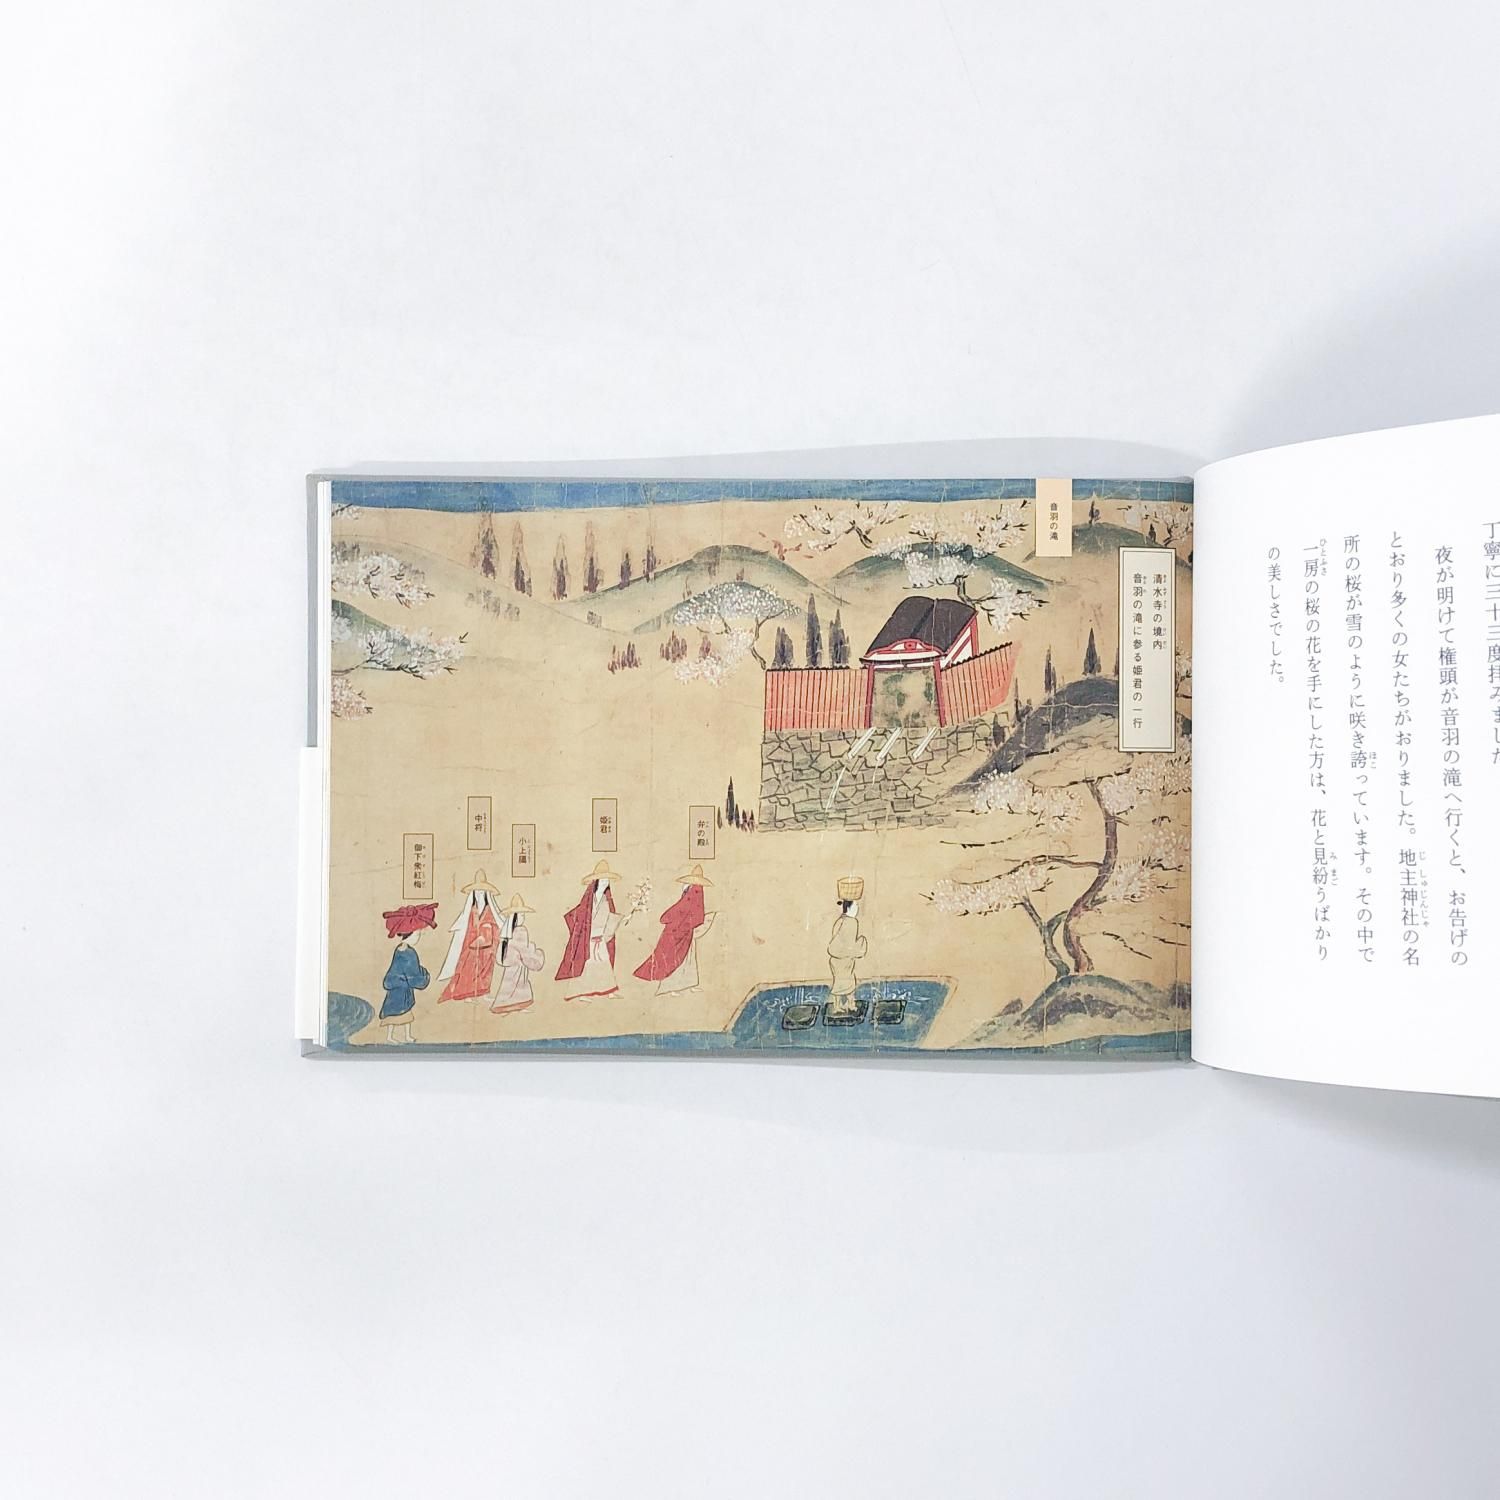 丁寧に三十三度拝みました
夜が明けて権頭が音羽の滝へ行くと、お告げの
とおり多くの女たちがおりました。地主神社の名
所の桜が雪のように咲き誇っています。その中で
一房の桜の花を手にした方は、花と見紛うばかり
の美しさでした。
清水寺の境内
音羽の滝に参る姫君の一行
音羽の滝
弁の殿
姫君
小上臈
中将
御下衆紅梅